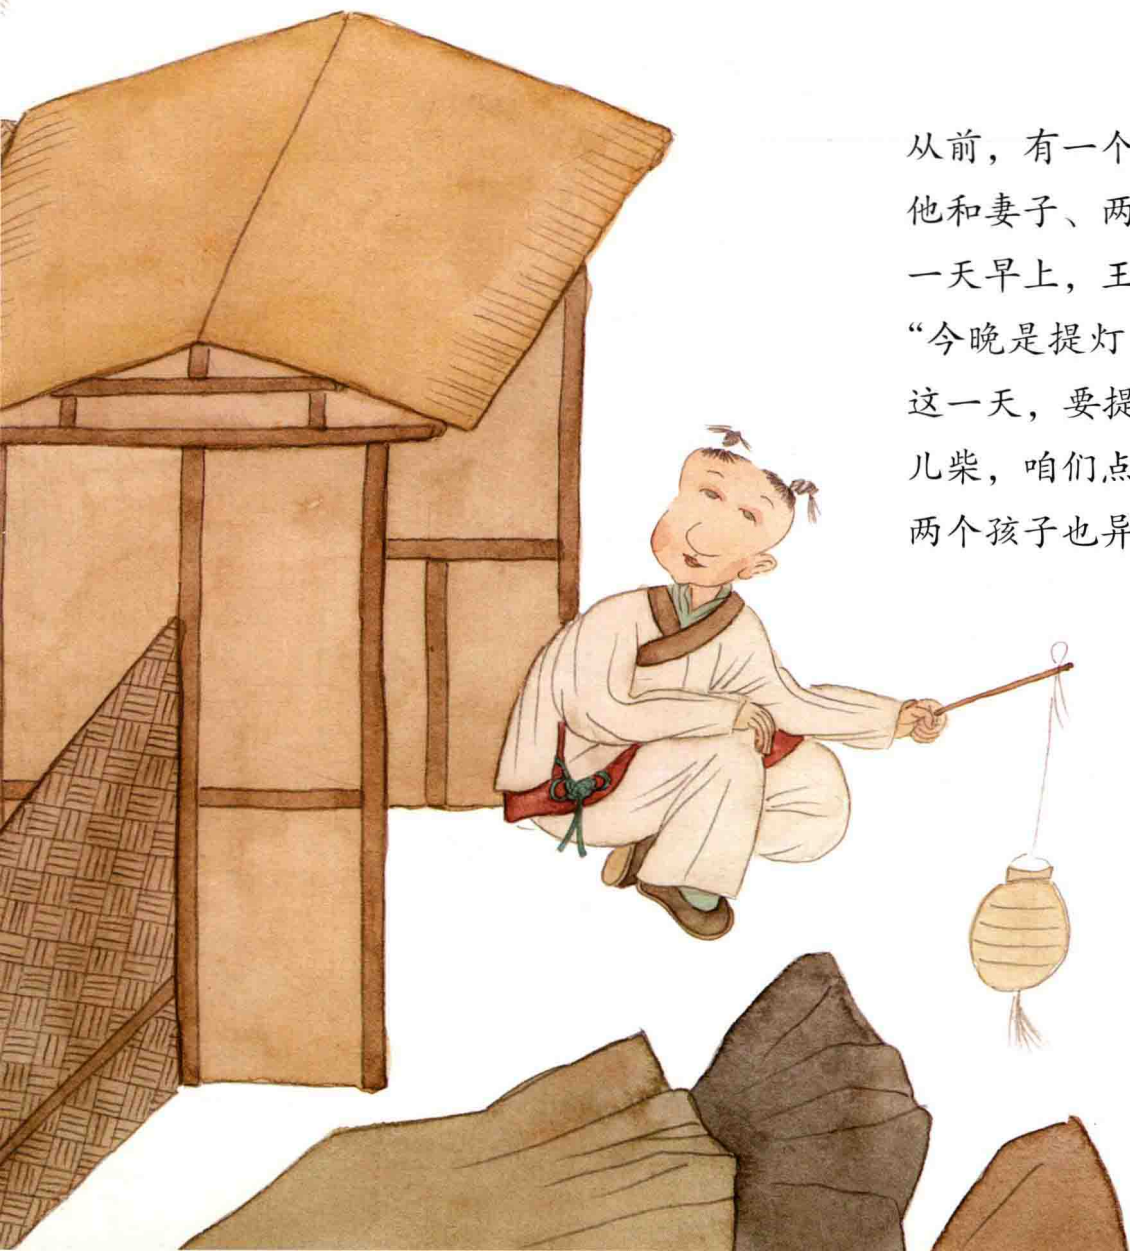 从前，有一个
他和妻子、两
一天早上，王
“今晚是提灯
这一天，要提
儿柴，咱们点
两个孩子也异